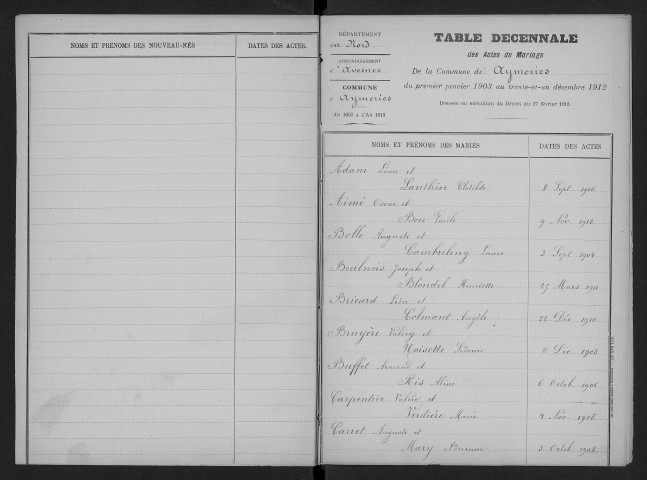 NOMS ET PRENOMS DES NOUVEAU-NÉS
DATES DES ACTES.
DÉPARTEMENT
du Nord
ARRONDISSEMENT
d'Avesnes
COMMUNE
d'Aymeries
AN 1903 A L'AN 1912
TABLE DECENNALE
des Actes de Mariage
De la Commune de Aymeries
du premier janvier 1903 au trente-et-un décembre 1912
Dressée en exécution du Décret du 27 février 1913.
NOMS ET PRÉNOMS DES MARIÉS
DATES DES ACTES
Adam Léon et
Lanthier Clotilde
8 Sept 1906
Aimé Oscar et
Bon
9 Nov. 1912
Bolle Auguste et
Laure
3 Sept 1904
Boulnois Joseph et
Blondel Henriette
25 Mars 1911
Bricard Léon et
Colmont Angèle
22 Déc 1910
Bruyère Valéry et
Noisette
2 Déc 1903
Buffet Armand et
Ris Aline
6 Octob. 1906
Carpentier Valère et
Verdière Marie
4 Nov. 1905
Carret Auguste et
Mary
3 Octob 1908